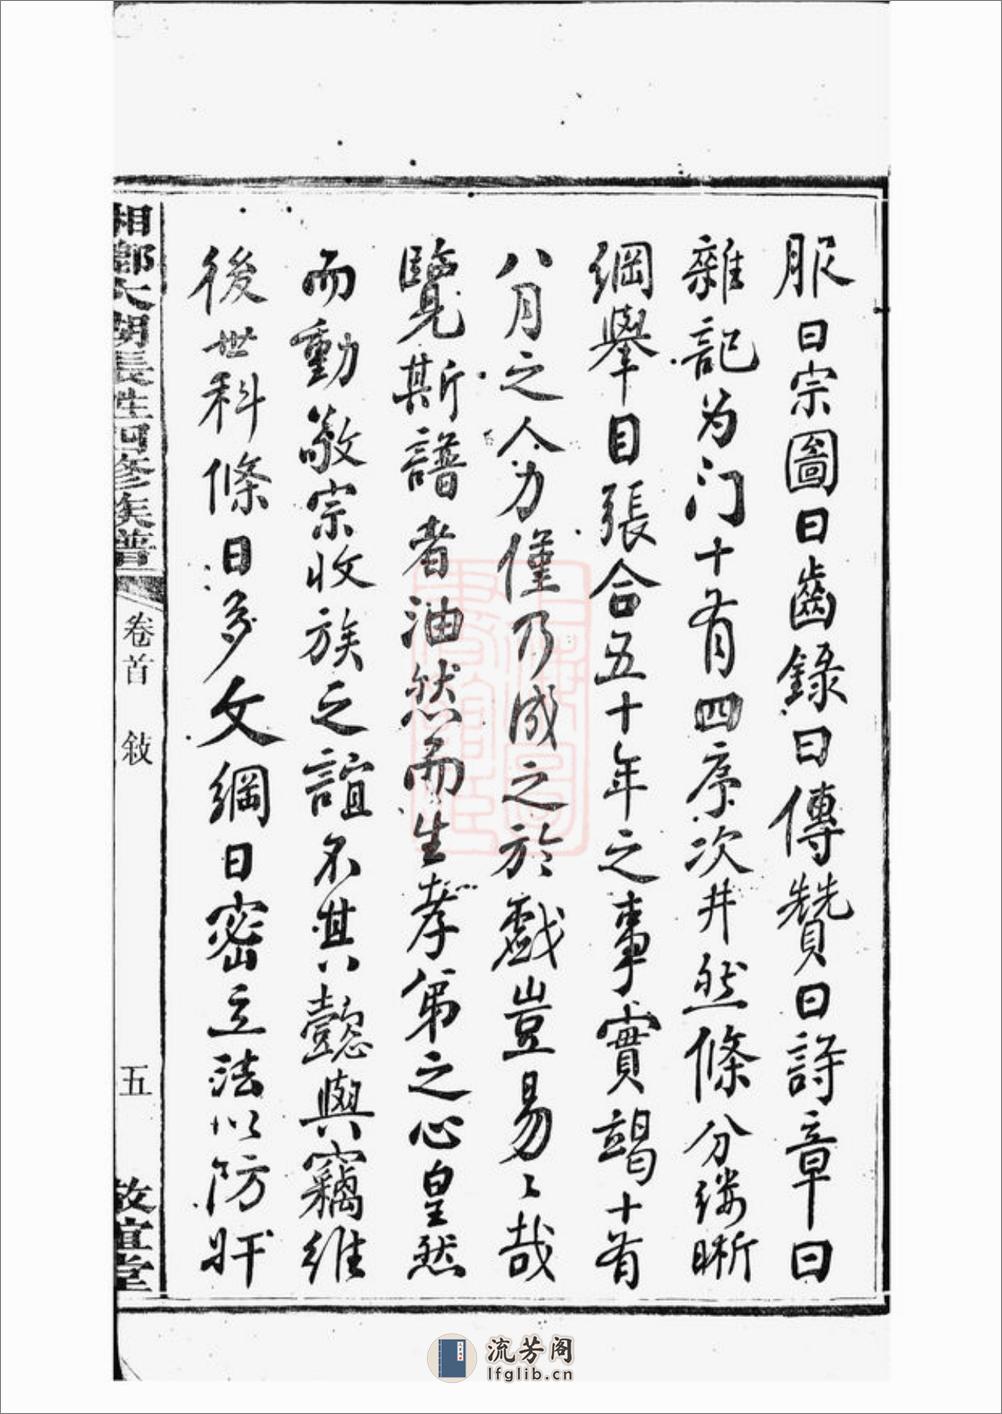 服曰宗圖曰齒錄曰傳贊曰詩章曰
雜記为门十有四序次井然條分缕晰
綱舉目張合五十年之事實竭十有
八月之人力僅乃成之於戲豈易易哉
覽斯譜者油然而生孝弟之心皇然
而動敬宗收族之誼不其懿與竊維
後世科條日多文綱日密立法以防奸
相鄉大湖長生四修族譜
卷首 敍
五
敦宜堂
流芳阁
lfglib.cn